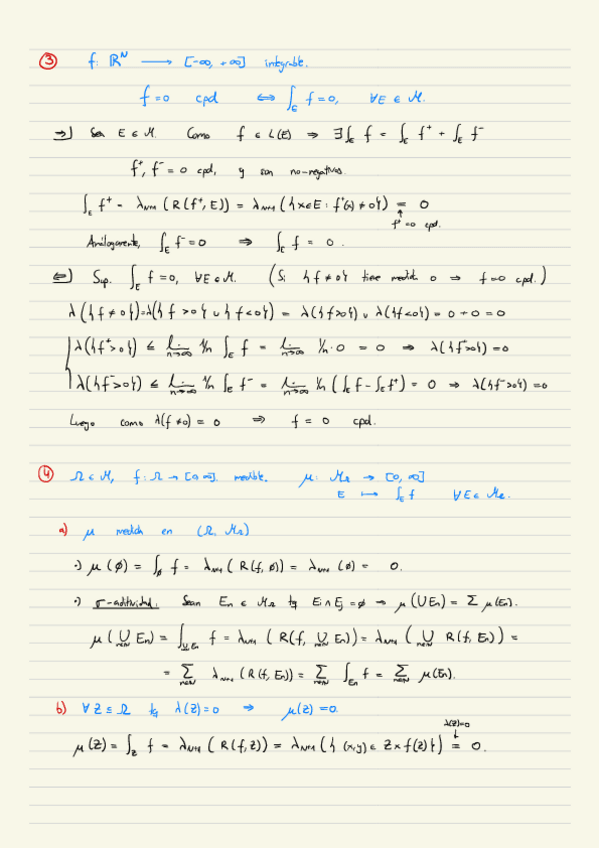 ③ f: ℝᴺ ⟶ [-∞, +∞] integrable.
f=0 cpd ⟺ ∫_E f=0, ∀E ∈ M.
⇒) Sea E ∈ M. Como f ∈ L(E) ⇒ ∃∫_E f = ∫_E f⁺ - ∫_E f⁻
f⁺, f⁻ = 0 cpd, y son no-negativos.
∫_E f⁺ = λ_{N+1} (R(f⁺, E)) = λ_{N+1} ({x∈E : f⁺(x) ≠ 0}) = 0
f⁺=0 cpd.
Análogamente, ∫_E f⁻=0 ⇒ ∫_E f = 0.
⇐) Sup. ∫_E f=0, ∀E∈M. (Si {f≠0} tiene medida 0 ⇒ f=0 cpd.)
λ({f≠0})=λ({f>0} ∪ {f<0}) = λ({f>0}) ∪ λ({f<0}) = 0+0=0
λ({f⁺>0}) ≤ lim_{n→∞} 1/n ∫_E f = lim_{n→∞} 1/n · 0 = 0 ⇒ λ({f⁺>0})=0
λ({f⁻>0}) ≤ lim_{n→∞} 1/n ∫_E f⁻ = lim_{n→∞} 1/n (∫_E f - ∫_E f⁺) = 0 ⇒ λ({f⁻>0})=0
Luego como λ(f≠0) = 0 ⇒ f = 0 cpd.
④ Ω ∈ M, f: Ω → [0, ∞]. medible. μ: M_Ω → [0, ∞]
E ↦ ∫_E f ∀E∈ M_Ω.
a) μ medida en (Ω, M_Ω)
·) μ(∅) = ∫_∅ f = λ_{N+1} (R(f, ∅)) = λ_{N+1} (∅) = 0.
·) σ-aditividad. Sean En ∈ M_Ω tq Ei∩Ej=∅ ⇒ μ(∪En) = Σ μ(En).
μ(∪_{n∈ℕ} En) = ∫_{∪En} f = λ_{N+1} (R(f, ∪_{n∈ℕ} En)) = λ_{N+1} (∪_{n∈ℕ} R(f, En)) =
= Σ_{n∈ℕ} λ_{N+1} (R(f, En)) = Σ_{n∈ℕ} ∫_{En} f = Σ_{n∈ℕ} μ(En).
b) ∀Z ⊆ Ω tq λ(Z)=0 ⇒ μ(Z)=0.
λ(Z)=0
μ(Z) = ∫_Z f = λ_{N+1} (R(f,Z)) = λ_{N+1} ({(x,y) ∈ Z × f(Z)}) = 0.